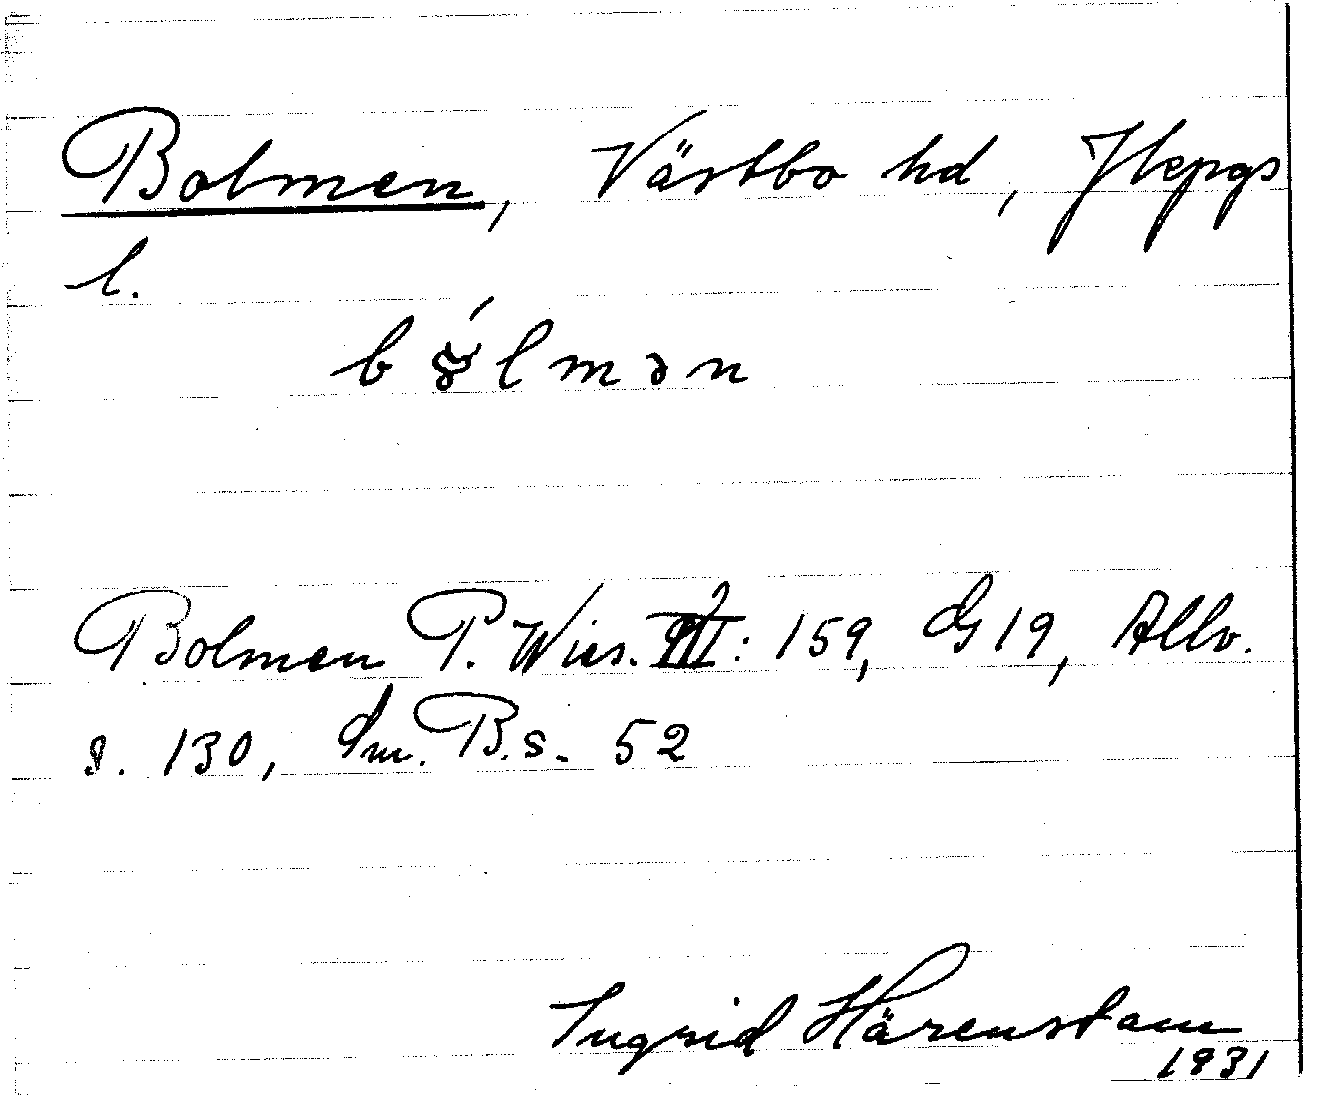 Bolmen, Västbo hd, Jkpgs
l.
bólmən
Bolmen P. Wies. III: 159, G 19, Allv.
s. 130, Sm. B. s. 52
Ingrid Härenstam
1931